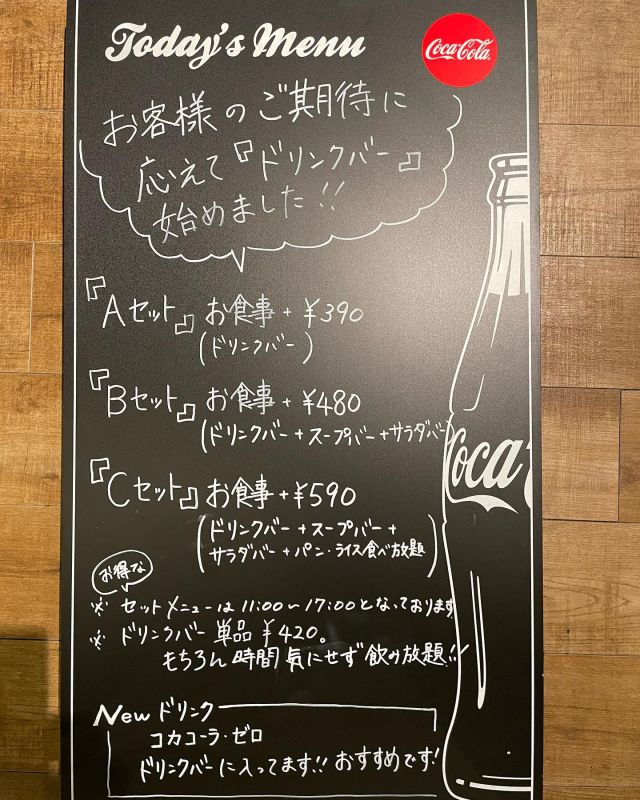 Today's Menu
Coca-Cola
お客様のご期待に
応えて『ドリンクバー』
始めました!!
『Aセット』 お食事+¥390
(ドリンクバー)
『Bセット』 お食事+¥480
(ドリンクバー+スープバー+サラダバー)
『Cセット』 お食事+¥590
(ドリンクバー+スープバー+
サラダバー+パン・ライス食べ放題)
お得な
※ セットメニューは11:00~17:00となっております
※ ドリンクバー 単品 ¥420。
もちろん 時間 気にせず 飲み放題!!
New ドリンク
コカコーラ・ゼロ
ドリンクバーに入ってます!! おすすめです!
Coca